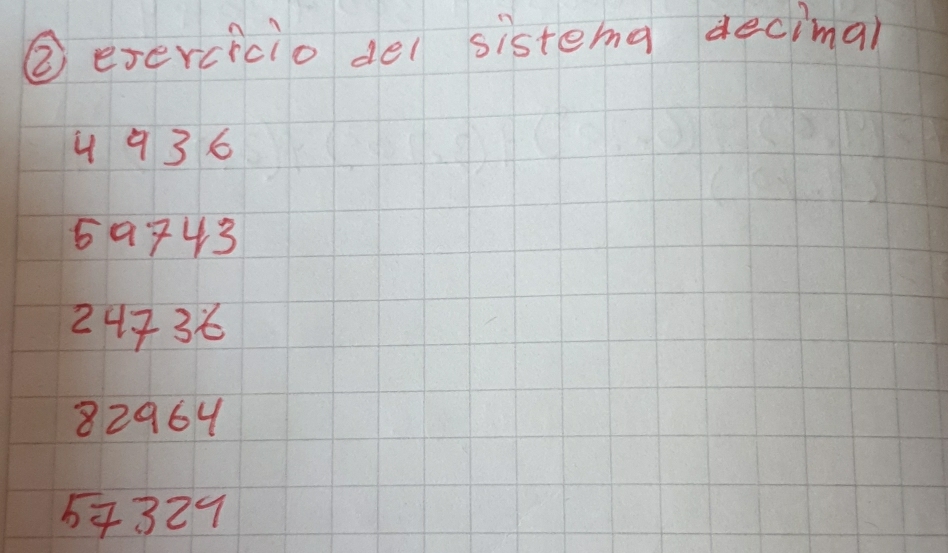 ② ejercicio del sistema decimal
4936
59743
24736
82964
57329